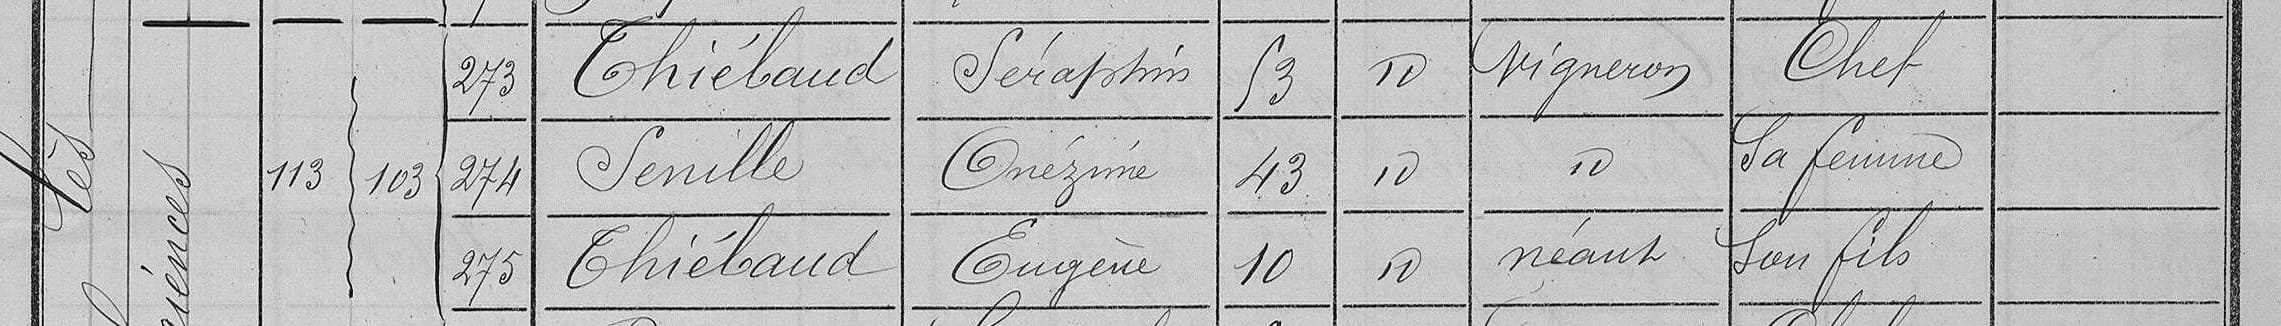 273 Thiébaud Séraphin 53 id Vigneron Chef
113 103 274 Senille Onézime 43 id id Sa femme
275 Thiébaud Eugène 10 id néant Son fils